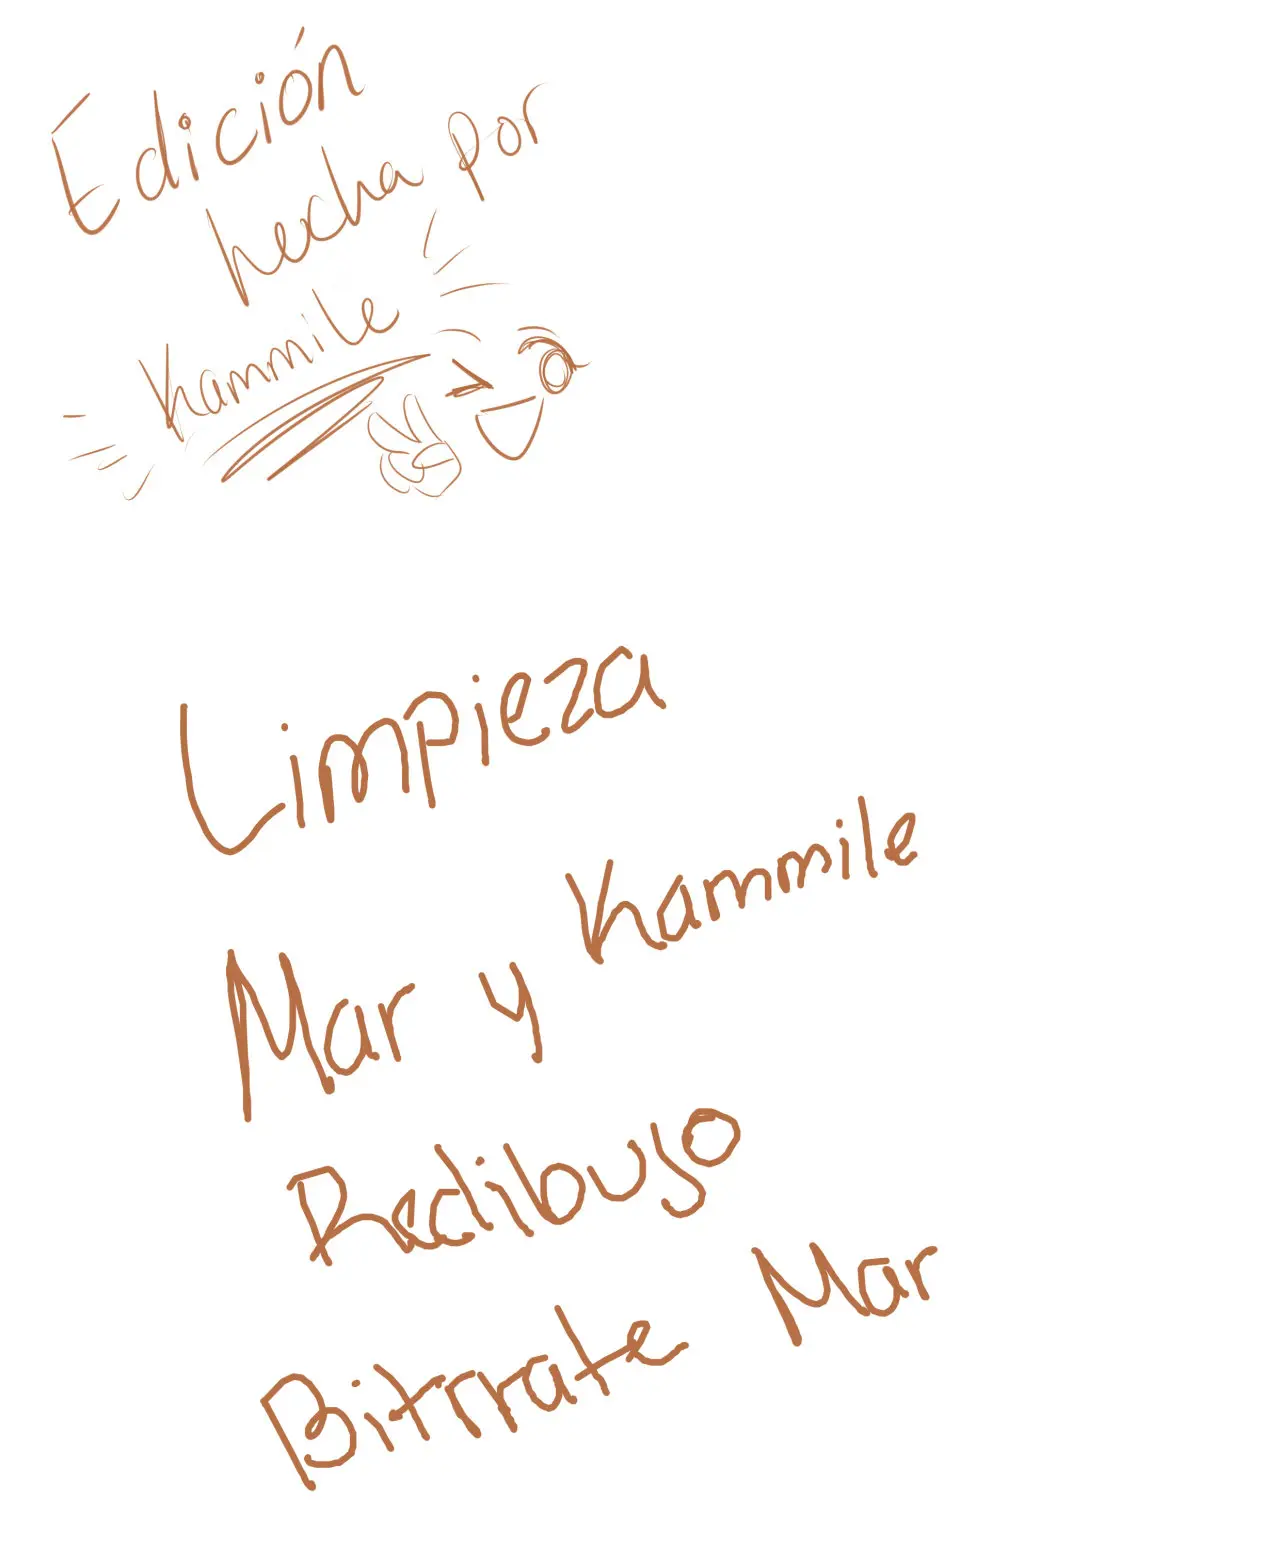 Edición
hecha por
Kammile
Limpieza
Mar y Kammile
Redibujo
Bitrrate Mar